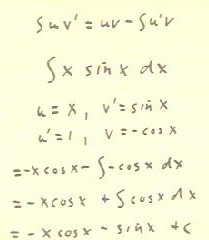 ∫uv' = uv - ∫u'v
∫ x sin x dx
u = x, v' = sin x
u' = 1, v = -cos x
= -x cos x - ∫-cos x dx
= -x cos x + ∫cos x dx
= -x cos x - sin x + c